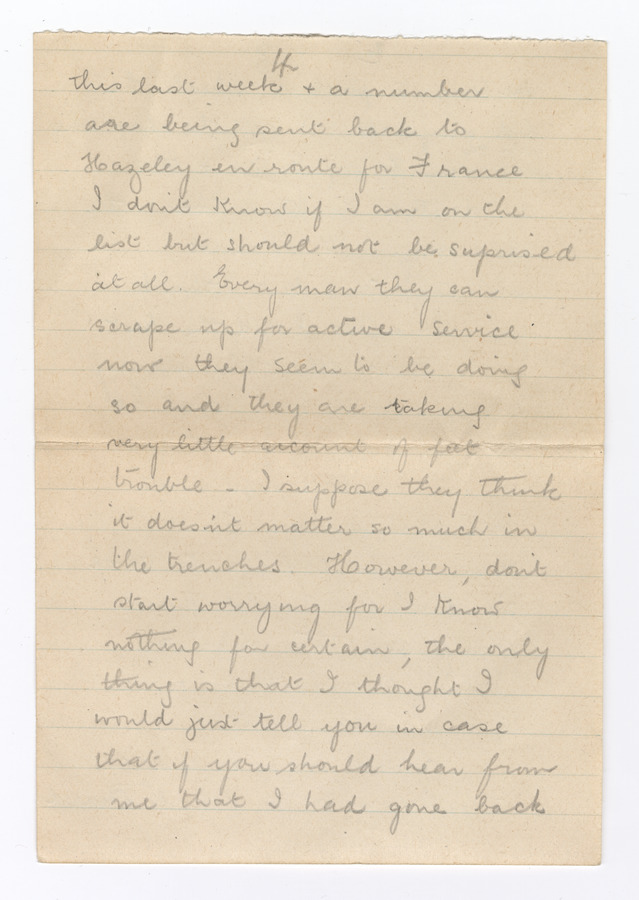 4
this last week + a number
are being sent back to
Hazeley en route for France
I don't know if I am on the
list but should not be suprised
at all. Every man they can
scrape up for active service
now they seem to be doing
so and they are taking
very little account of feet
trouble - I suppose they think
it doesn't matter so much in
the trenches. However, don't
start worrying for I know
nothing for certain, the only
thing is that I thought I
would just tell you in case
that if you should hear from
me that I had gone back